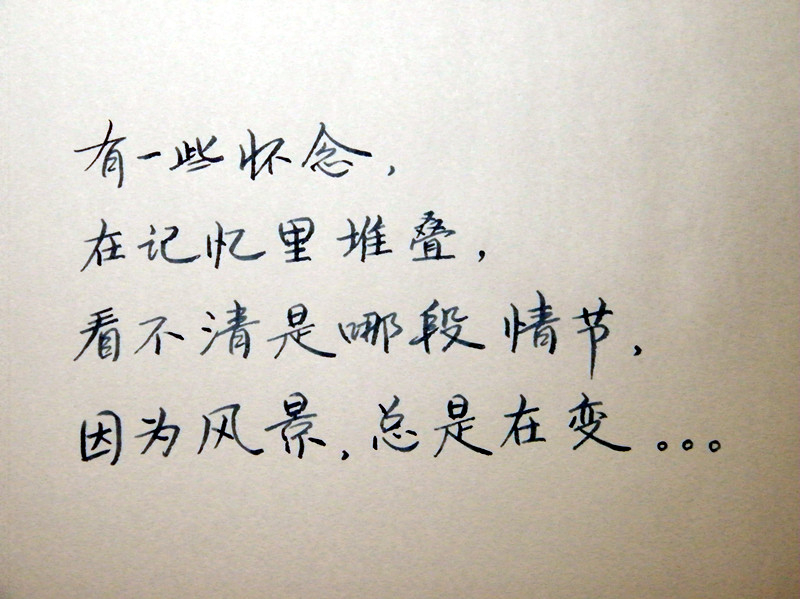 有一些怀念，
在记忆里堆叠，
看不清是哪段情节，
因为风景，总是在变。。。